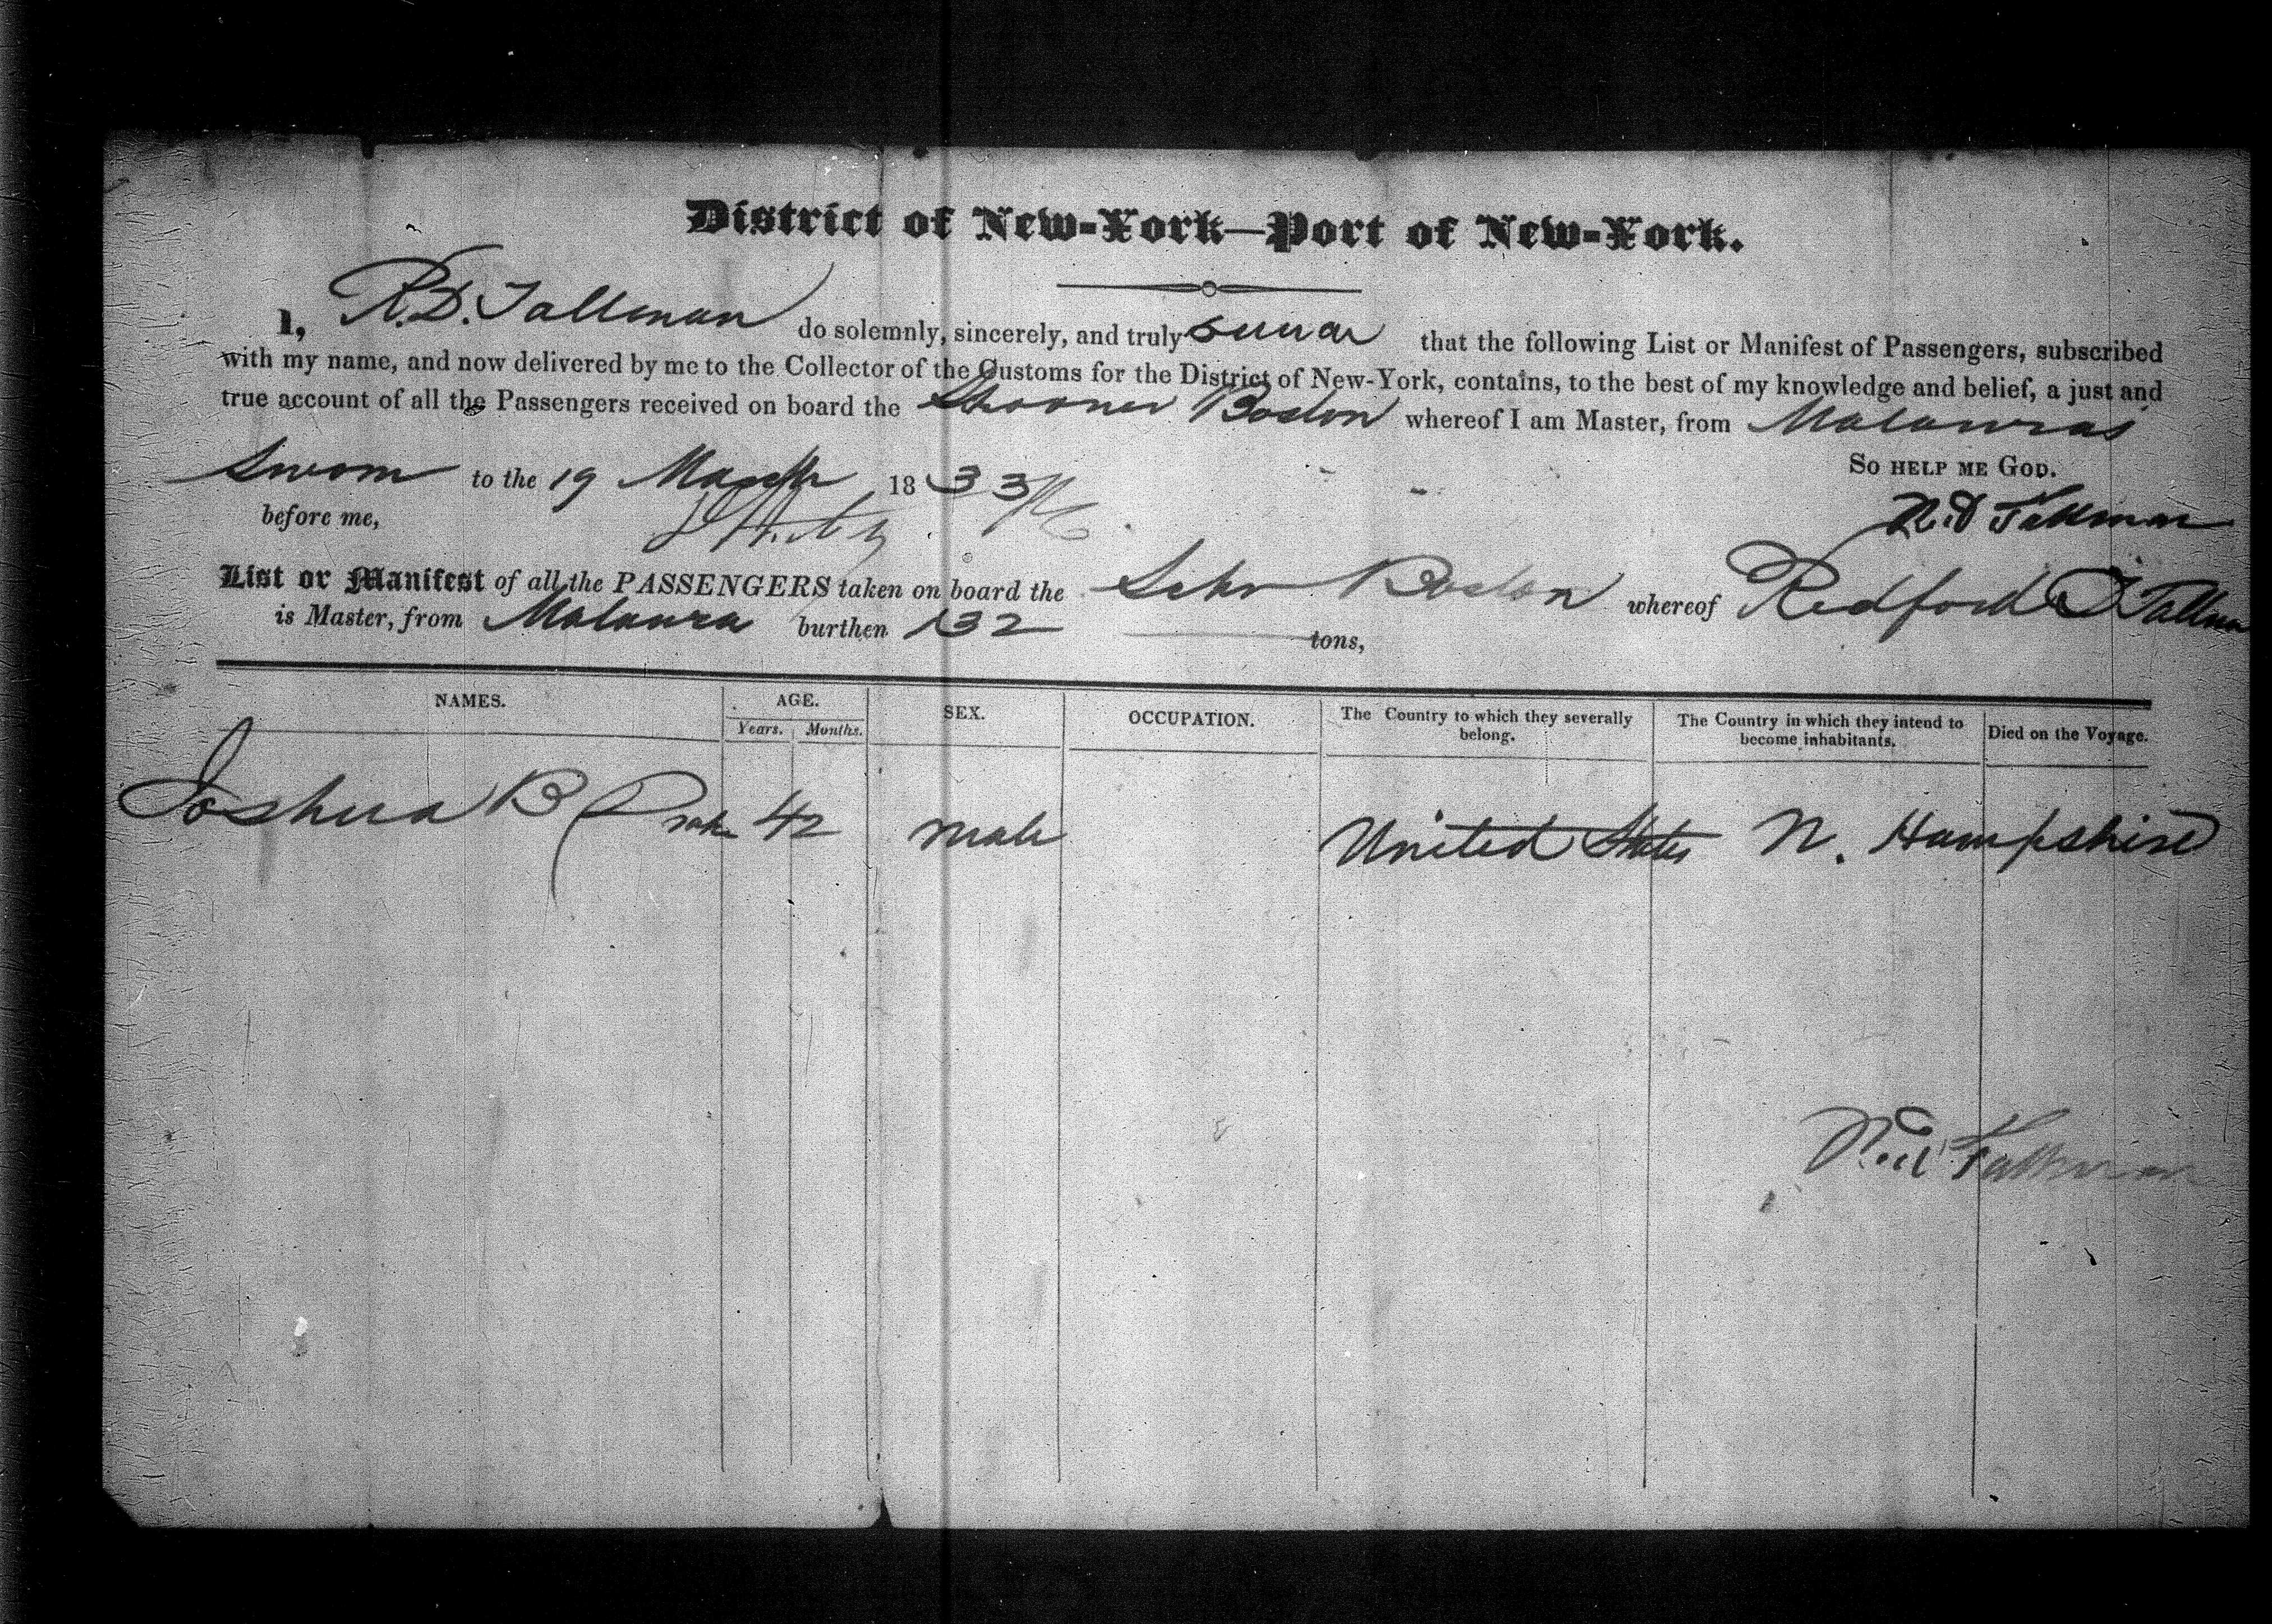 District of New-York—Port of New-York.
I, R.D. Tallman do solemnly, sincerely, and truly swear that the following List or Manifest of Passengers, subscribed
with my name, and now delivered by me to the Collector of the Customs for the District of New-York, contains, to the best of my knowledge and belief, a just and
true account of all the Passengers received on board the Shooner Boston whereof I am Master, from
So help me God.
Sworn to the 19 March 1833
before me,
R.D Tallman
List or Manifest of all the PASSENGERS taken on board the Schr Boston whereof Redford D Tallman
is Master, from burthen 132 tons,
NAMES. AGE. SEX. OCCUPATION. The Country to which they severally belong. The Country in which they intend to become inhabitants. Died on the Voyage.
Years. Months.
Joshua B Drake 42 male United States N. Hampshire
R.D Tallman